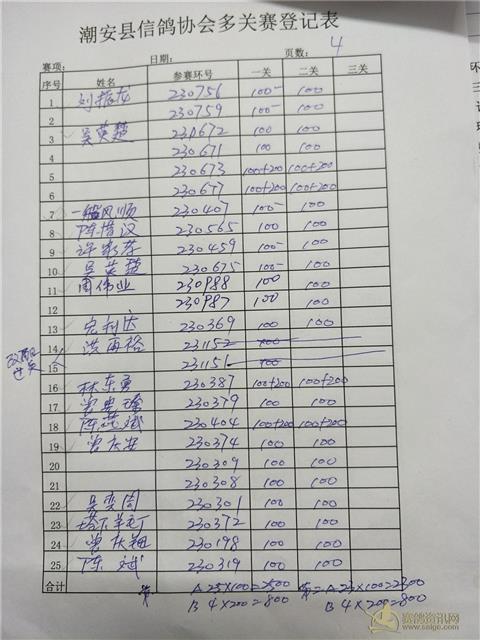 潮安县信鸽协会多关赛登记表
赛项： 日期： 页数： 4
序号 姓名 参赛环号 一关 二关 三关
1 刘振龙 230756 100 100
2 230759 100 100
3 吴英楚 230672 100 100
4 230671 100 100
5 230673 100+200 100+200
6 230677 100+200 100+200
7 一帆风顺 230407 100 100
8 陈惜汉 230565 100 100
9 许 230459 100 100
10 吴英楚 230675 100 100
11 周伟业 230988 100 100
12 230987 100 100
13 宏利达 230369 100 100
14 洪再裕 231152 100
15 231151 100
16 林东勇 230387 100+200 100+200
17 230379 100 100
18 陈 斌 230404 100+200 100+200
19 曾庆安 230374 100 100
20 230309 100 100
21 230308 100 100
22 吴奕周 230301 100 100
23 塔下羊 230372 100 100
24 曾庆翔 230198 100 100
25 陈斌 230319 100 100
合计 A 25×100=2500 A 23×100=2300
B 4×200=800 B 4×200=800
赛鸽资讯网
www.saige.com